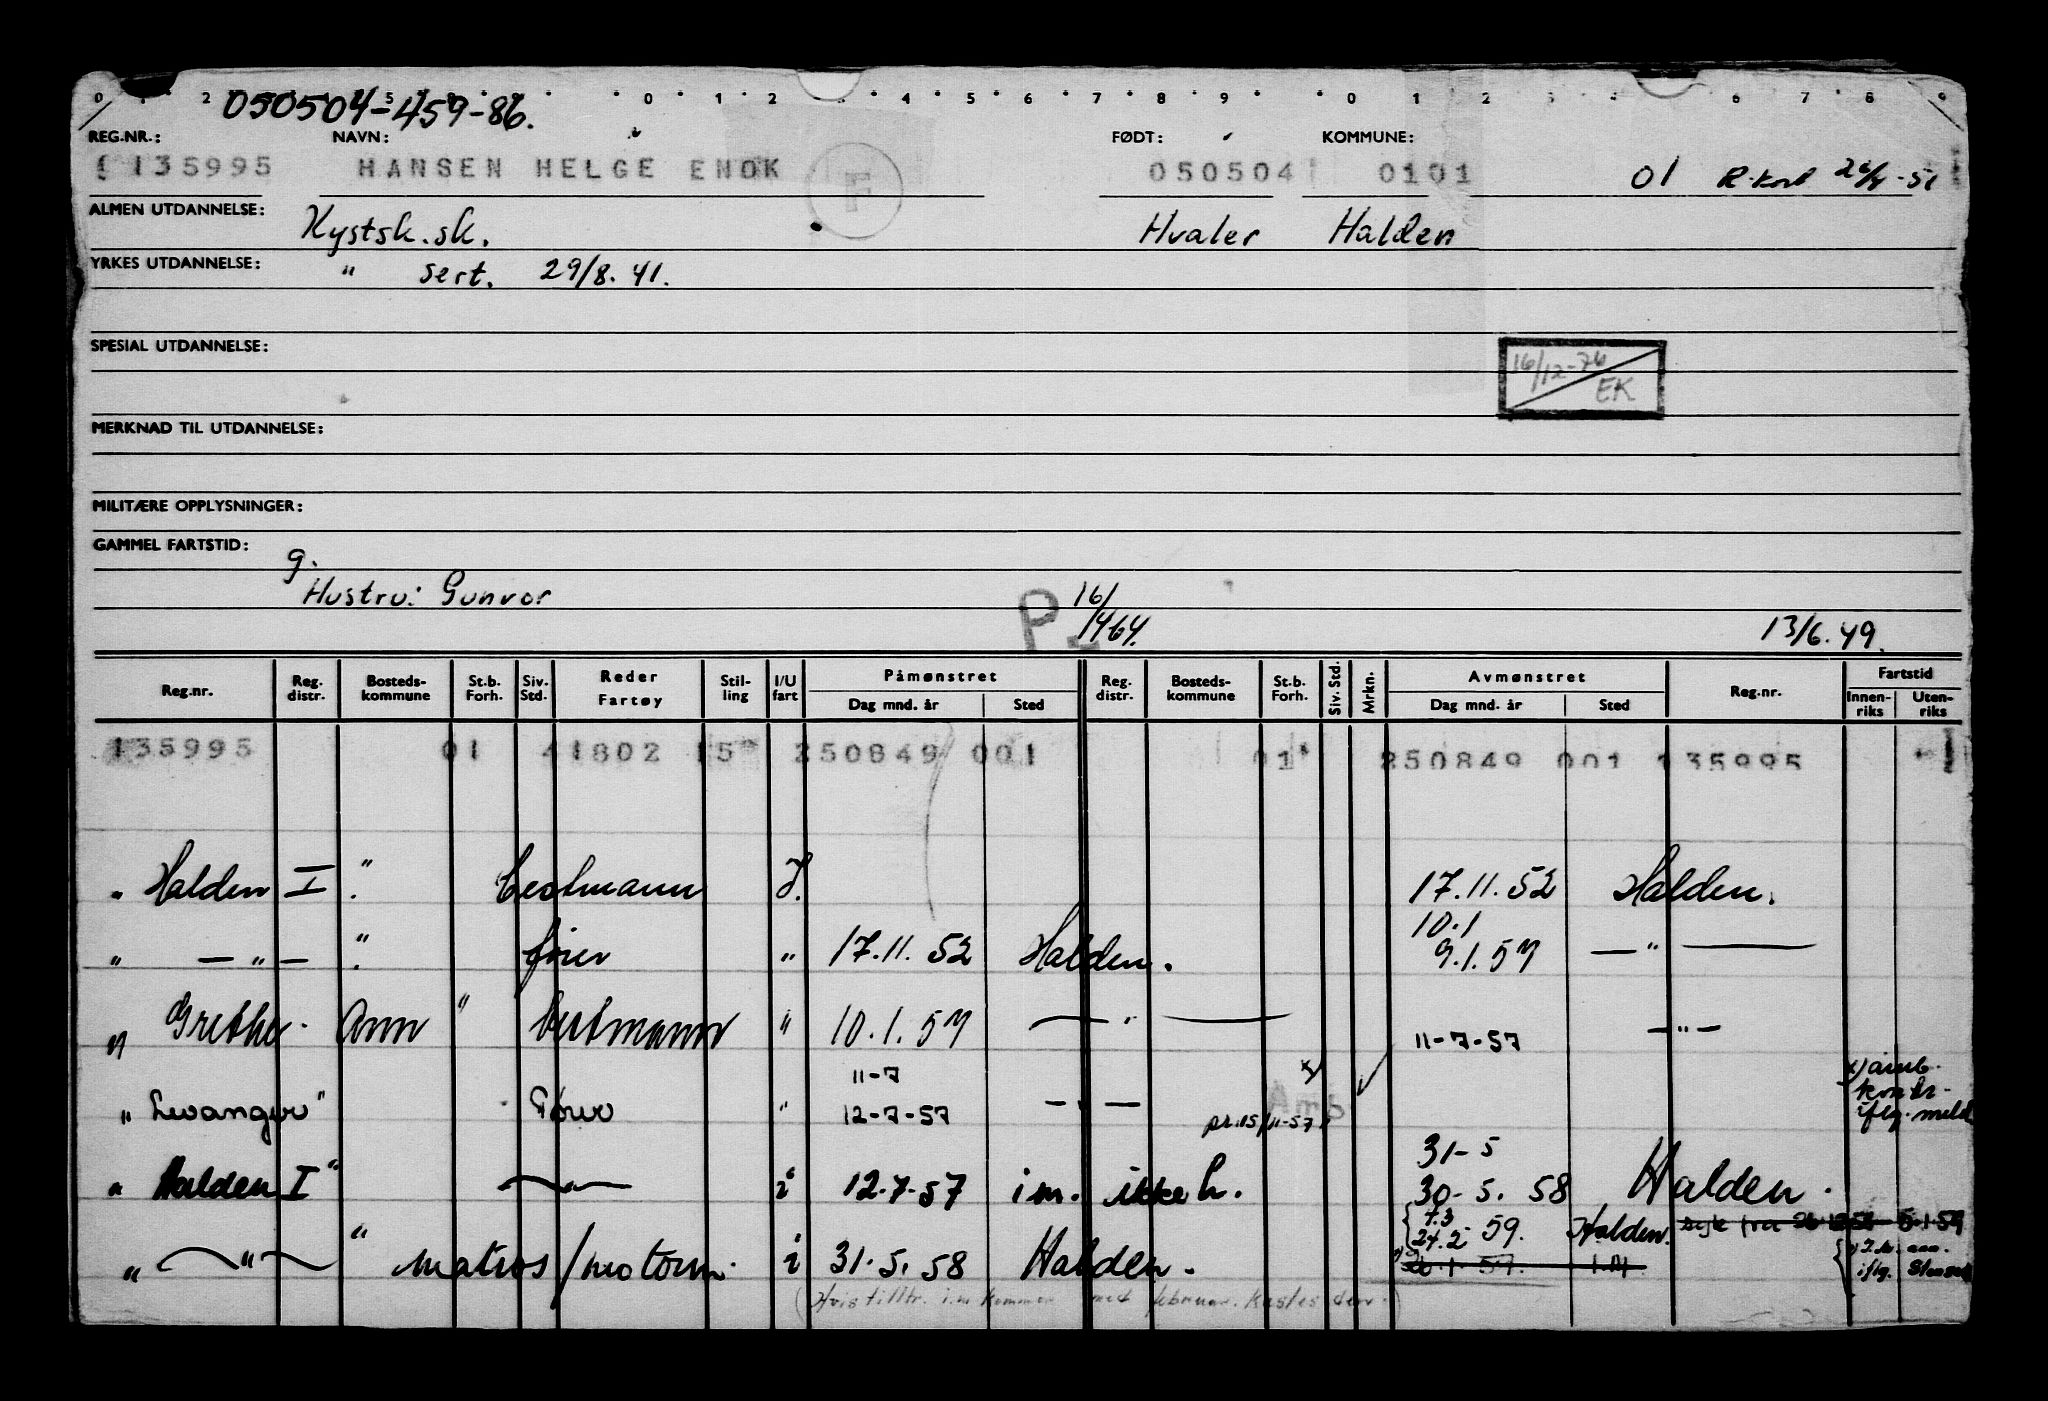 050504-459-86.
REG.NR.: NAVN: FØDT: KOMMUNE:
135995 HANSEN HELGE ENOK F 050504 0101 01 R-kort
ALMEN UTDANNELSE: Kystsk.sk. Hvaler Halden
YRKES UTDANNELSE: " sert. 29/8.41.
SPESIAL UTDANNELSE:
16/12-76 EK
MERKNAD TIL UTDANNELSE:
MILITÆRE OPPLYSNINGER:
GAMMEL FARTSTID:
g.
Hustru: Gunvor
P. 16/1464.
13/6.49.
Reg.nr. Reg. distr. Bosteds-kommune St.b. Forh. Siv. Std. Reder Fartøy Stil-ling I/U fart Påmønstret Dag mnd. år Sted Reg. distr. Bosteds-kommune St.b. Forh. Siv. Std. Mrkn. Avmønstret Dag mnd. år Sted Reg.nr. Fartstid Innen-riks Uten-riks
135995 01 41802 15 250849 001 01 250849 001 135995
" Halden I " Bestmann I. 17.11.52 Halden.
10.1
" — " — " fører " 17.11.52 Halden. 9.1.57 — " —
" Grethe Ann " Bestmann " 10.1.57 — " — 11-7-57 — " —
11-7
x) amb.
kontr.
" Levanger " Fører " 12-7-57 — " — pr.15/11-57 iflg. meld
31-5
" Halden I " — " — i 12.7.57 i.m. ikke h. 30-5.58 Halden.
4.3
24.2 59. Halden. syk fra
" — " — " matros/motorm. i 31.5.58 Halden.
(Hvis tilltr. i.m kommer med februar. kastes den.)